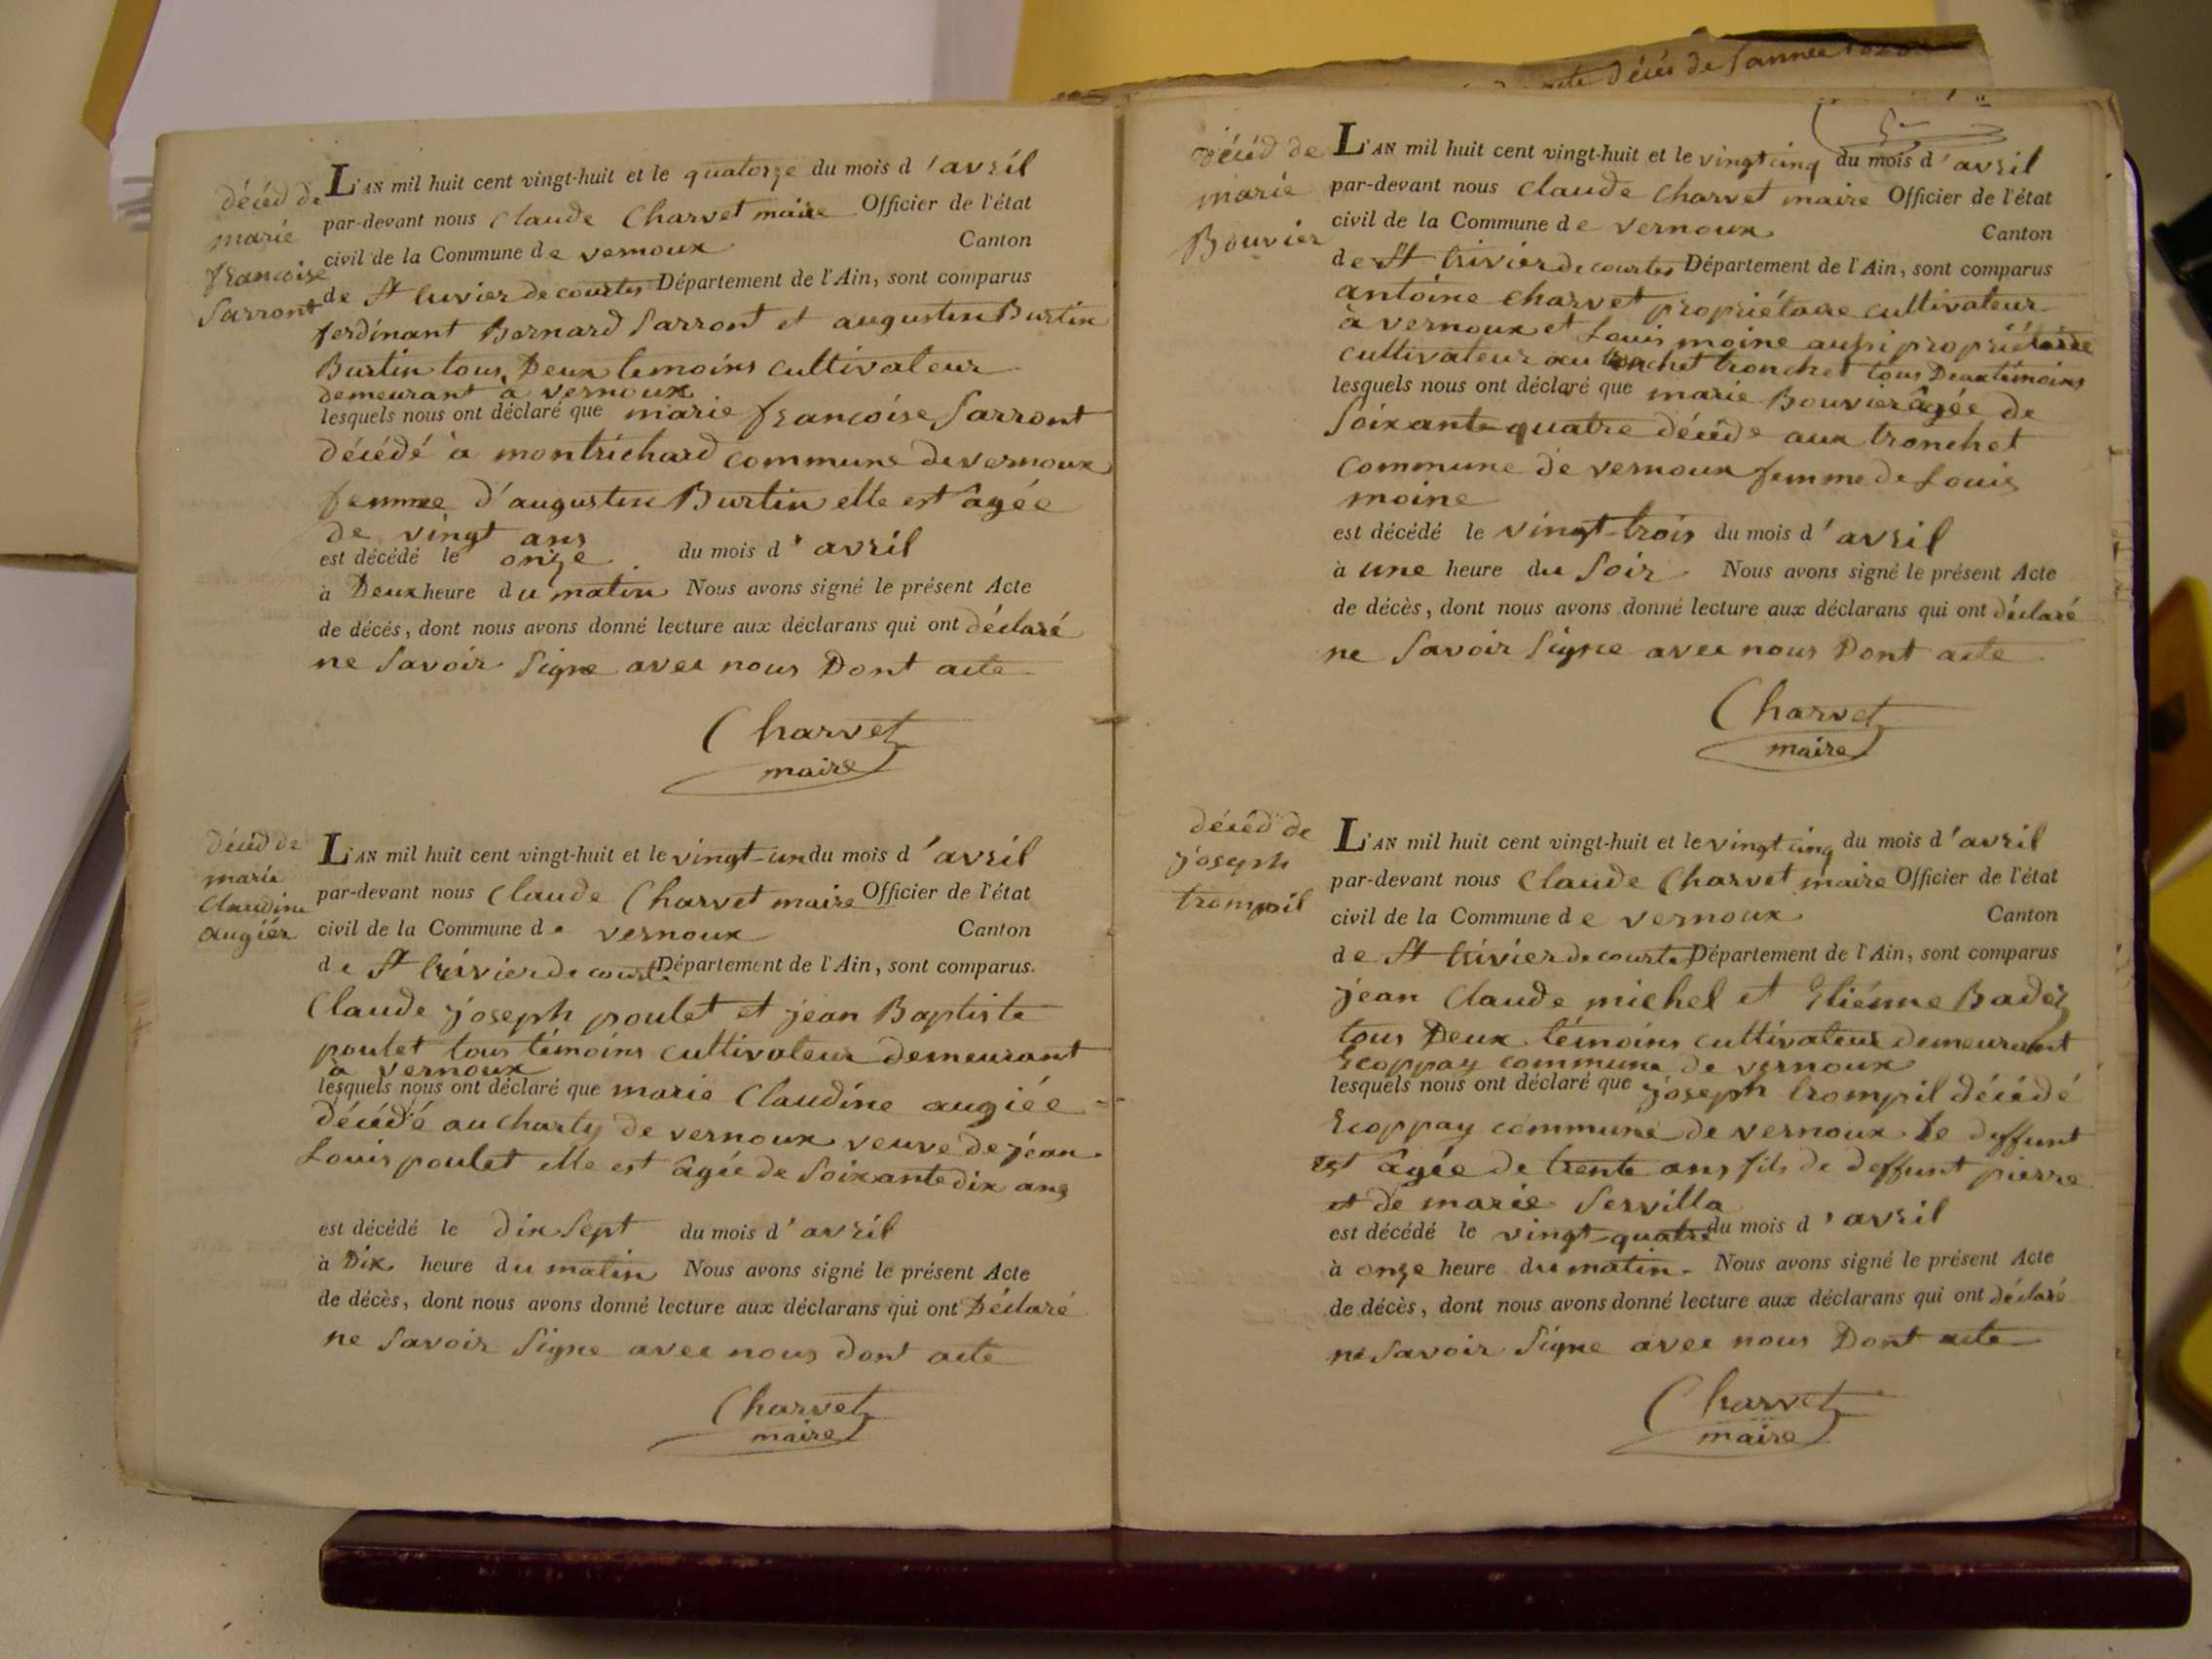 acte décès de l'année
décéd de
marie
françoise
Sarront
L'AN mil huit cent vingt-huit et le quatorze du mois d'avril
par-devant nous Claude Charvet maire Officier de l'état
civil de la Commune de vernoux Canton
de St trivier de courtes Département de l'Ain, sont comparus
ferdinant Bernard Sarront et augustin Burtin
Burtin tous Deux temoins cultivateur
demeurant à vernoux
lesquels nous ont déclaré que marie françoise Sarront
décédé à montrichard commune de vernoux
femme d'augustin Burtin elle est âgée
de vingt ans
est décédé le onze du mois d'avril
à Deux heure du matin Nous avons signé le présent Acte
de décès, dont nous avons donné lecture aux déclarans qui ont déclaré
ne Savoir Signe avec nous Dont acte
Charvet
maire
décéd de
marie
Claudine
augiér
L'AN mil huit cent vingt-huit et le vingt-un du mois d'avril
par-devant nous Claude Charvet maire Officier de l'état
civil de la Commune de vernoux Canton
de St trivier de courte Département de l'Ain, sont comparus.
Claude joseph poulet et jean Baptiste
poulet tous témoins cultivateur demeurant
à vernoux
lesquels nous ont déclaré que marie Claudine augiée
décédé au Charty de vernoux veuve de jéan
Louis poulet elle est âgée de Soixante dix ans
est décédé le dix Sept du mois d'avril
à Dix heure du matin Nous avons signé le présent Acte
de décès, dont nous avons donné lecture aux déclarans qui ont Déclaré
ne Savoir Signe avec nous dont acte
Charvet
maire
décéd de
marie
Bouvier
L'AN mil huit cent vingt-huit et le vingt cinq du mois d'avril
par-devant nous Claude Charvet maire Officier de l'état
civil de la Commune de vernoux Canton
de St trivier de courtes Département de l'Ain, sont comparus
antoine Charvet propriétaire cultivateur
à vernoux et Louis moine aussi propriétaire
cultivateur au tronchet tous Deux témoins
lesquels nous ont déclaré que marie Bouvier âgée de
Soixante-quatre décéde aux tronchet
commune de vernoux femme de Louis
moine
est décédé le vingt-trois du mois d'avril
à une heure du Soir Nous avons signé le présent Acte
de décès, dont nous avons donné lecture aux déclarans qui ont déclaré
ne Savoir Signe avec nous Dont acte
Charvet
maire
décéd de
joseph
trompil
L'AN mil huit cent vingt-huit et le vingt cinq du mois d'avril
par-devant nous Claude Charvet maire Officier de l'état
civil de la Commune de vernoux Canton
de St trivier de courte Département de l'Ain, sont comparus
jean Claude michel et Etiénne Badez
tous Deux témoins cultivateur demeurant
Ecoppay commune de vernoux
lesquels nous ont déclaré que joseph trompil décédé
Ecoppay commune de vernoux le deffunt
est âgée de trente ans fils de deffunt pierre
et de marie Servilla
est décédé le vingt-quatre du mois d'avril
à onze heure du matin. Nous avons signé le présent Acte
de décès, dont nous avons donné lecture aux déclarans qui ont déclaré
ne Savoir Signe avec nous Dont acte
Charvet
maire